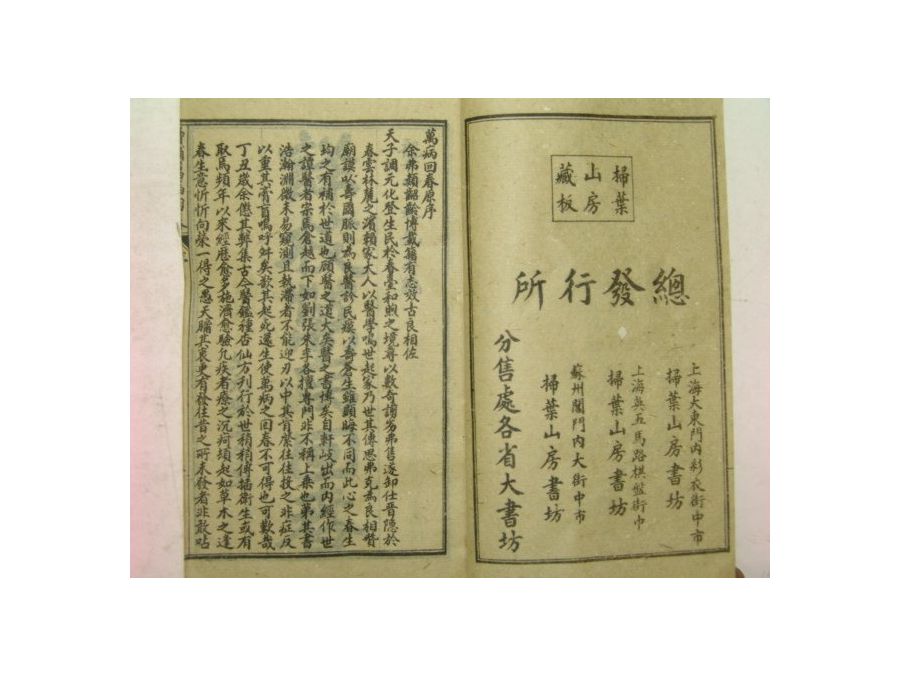 掃葉
山房
藏板
總發行所
上海大東門內彩衣街中市
掃葉山房書坊
上海英五馬路棋盤街中
掃葉山房書坊
蘇州閶門內大街中市
掃葉山房書坊
分售處各省大書坊
萬病回春原序
余弗類韶齡博戴籍有志效古良相佐
天子調元化登生民於春臺和煦之境尋以數奇謭劣弗售遂卸仕晉隱於
春雲林麓之濱賴家大人以醫學鳴世起家乃世其傳思弗克為良相贊
廟謨以壽國脈則為良醫診民瘼以壽蒼生雖顯晦不同而此心之春生
均之有補於世道也顧醫之道大矣醫之書博矣自軒岐出而內經作世
之譚醫者宗焉倉越而下如劉張朱李各擅專門非不稱上乘也第其書
浩瀚淵微未易窺測且執滯者不能迎刃以中其肯綮往往投之非症反
以重其膏肓嗚呼舛矣欲其起死還生使萬病之回春不可得也可歎哉
丁丑歲余憖其弊集古今醫鑑種杏仙方刊行於世稍稍傳播衛生或有
取焉頻年以來經歷愈多施濟愈驗凡疾者療之沉疴頓起如草木之逢
春生意忻忻向榮一得之愚天牖其衷更有發往昔之所未發者非敢呫